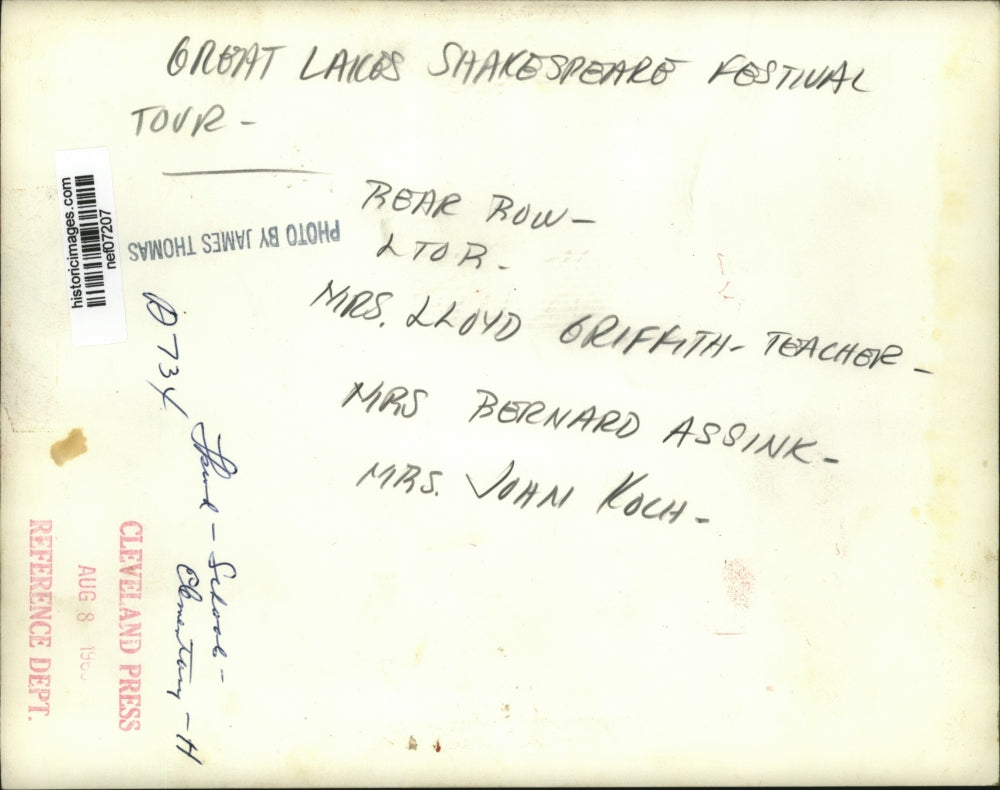 GREAT LAKES SHAKESPEARE FESTIVAL
TOUR -
REAR ROW -
L TO R -
MRS. LLOYD GRIFFITH - TEACHER -
MRS BERNARD ASSINK -
MRS. JOHN KOCH -
historicimages.com
nef07207
PHOTO BY JAMES THOMAS
D734
- School -
Elementary - H
CLEVELAND PRESS
AUG 8 196
REFERENCE DEPT.